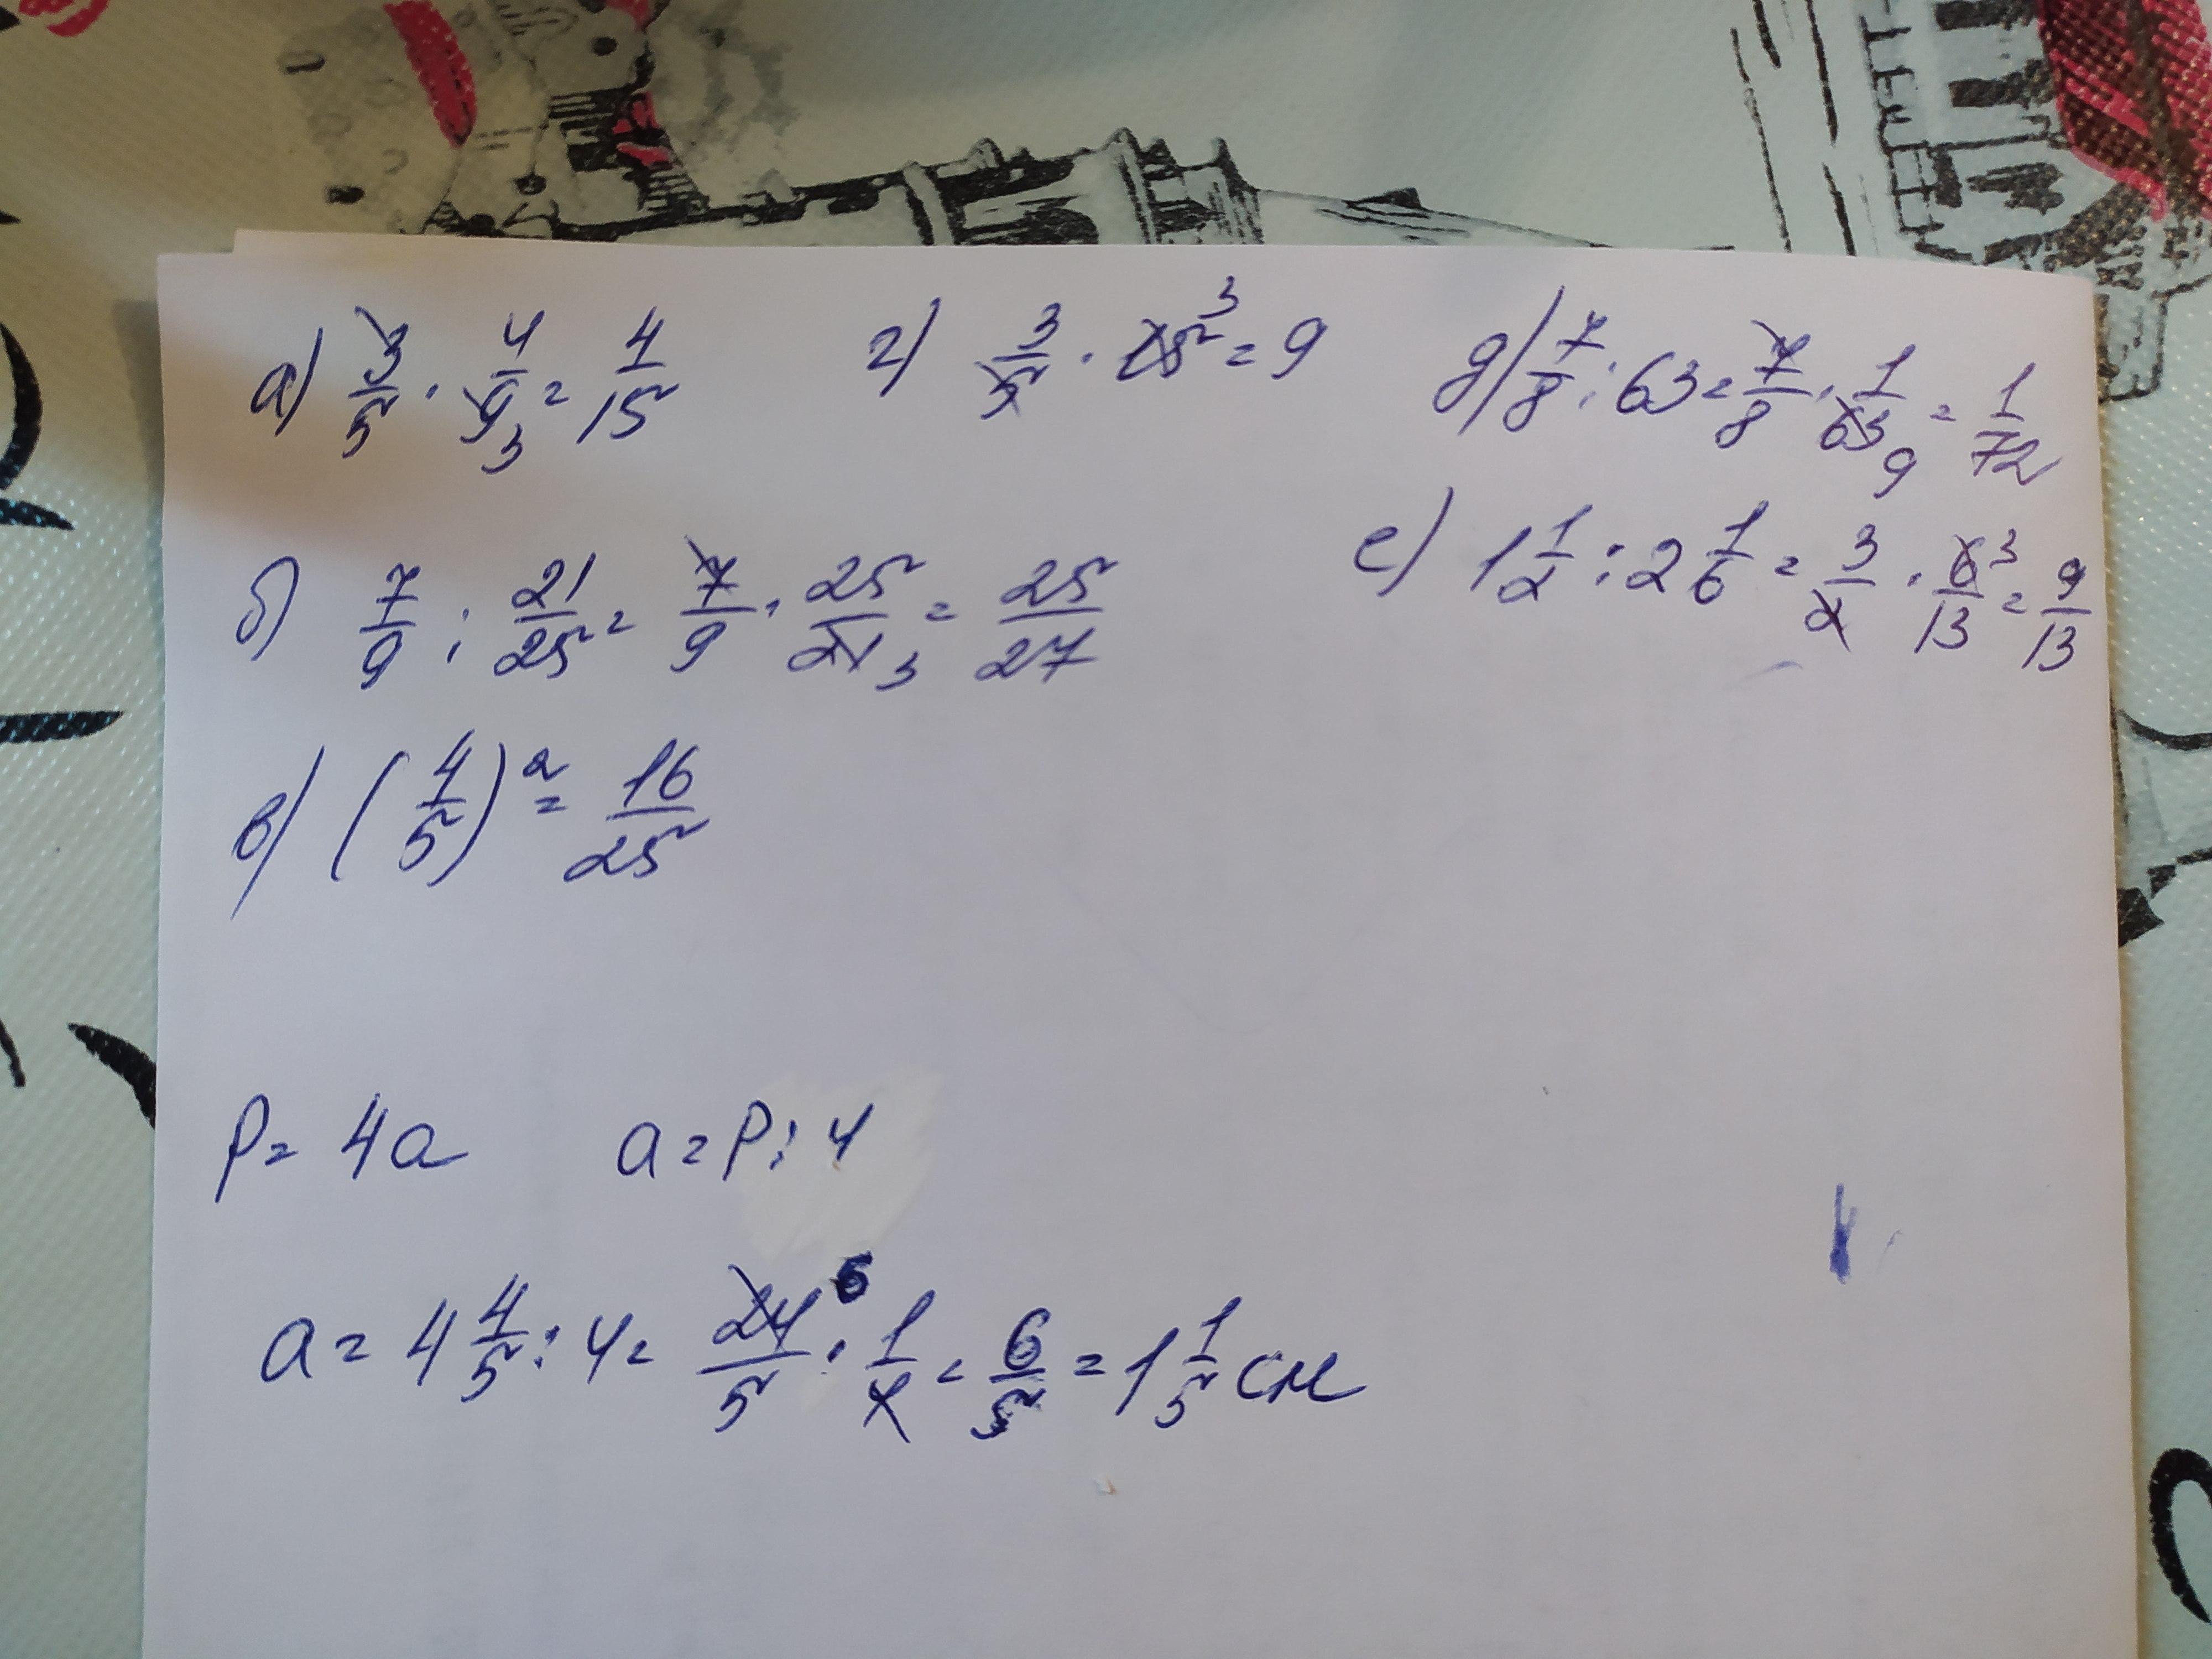 а) 3/5 · 4/9 3 = 4/15
г) 3/5 · 15 3 = 9
д) 7/8 : 63 = 7/8 · 1/63 9 = 1/72
б) 7/9 : 21/25 = 7/9 · 25/21 3 = 25/27
е) 1 1/2 : 2 1/6 = 3/2 · 6 3/13 = 9/13
в) (4/5)² = 16/25
P = 4a a = P : 4
a = 4 4/5 : 4 = 24 6/5 · 1/4 = 6/5 = 1 1/5 см